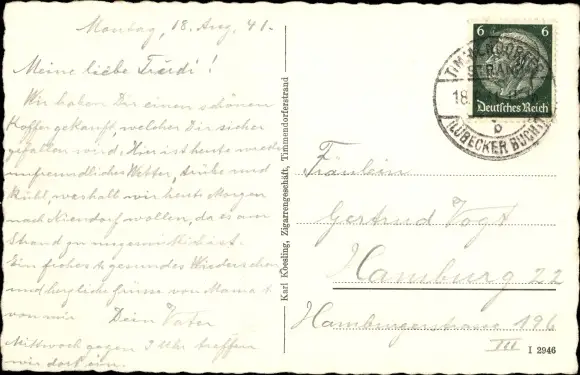 Montag, 18. Aug. 41.
Meine liebe Trudi!
Wir haben Dir einen schönen
Koffer gekauft, welcher Dir sicher
gefallen wird. Hier ist heute wieder
unfreundliches Wetter, trübe und
kühl, weshalb wir heute Morgen
nach Niendorf wollen, da es am
Strand zu ungemütlich ist.
Ein frohes & gesundes Wiedersehen
und herzliche Grüsse von Mama &
von mir Dein Vater
Mittwoch gegen 7 Uhr treffen
wir dort ein.
Karl Koesling, Zigarrengeschäft, Timmendorferstrand
6 6
Deutsches Reich
TIMMENDORFER
STRAND
18.
b
(LÜBECKER BUCHT)
Fräulein
Gertrud Vogt
Hamburg 22
Hamburgerstrasse 196
III
I 2946